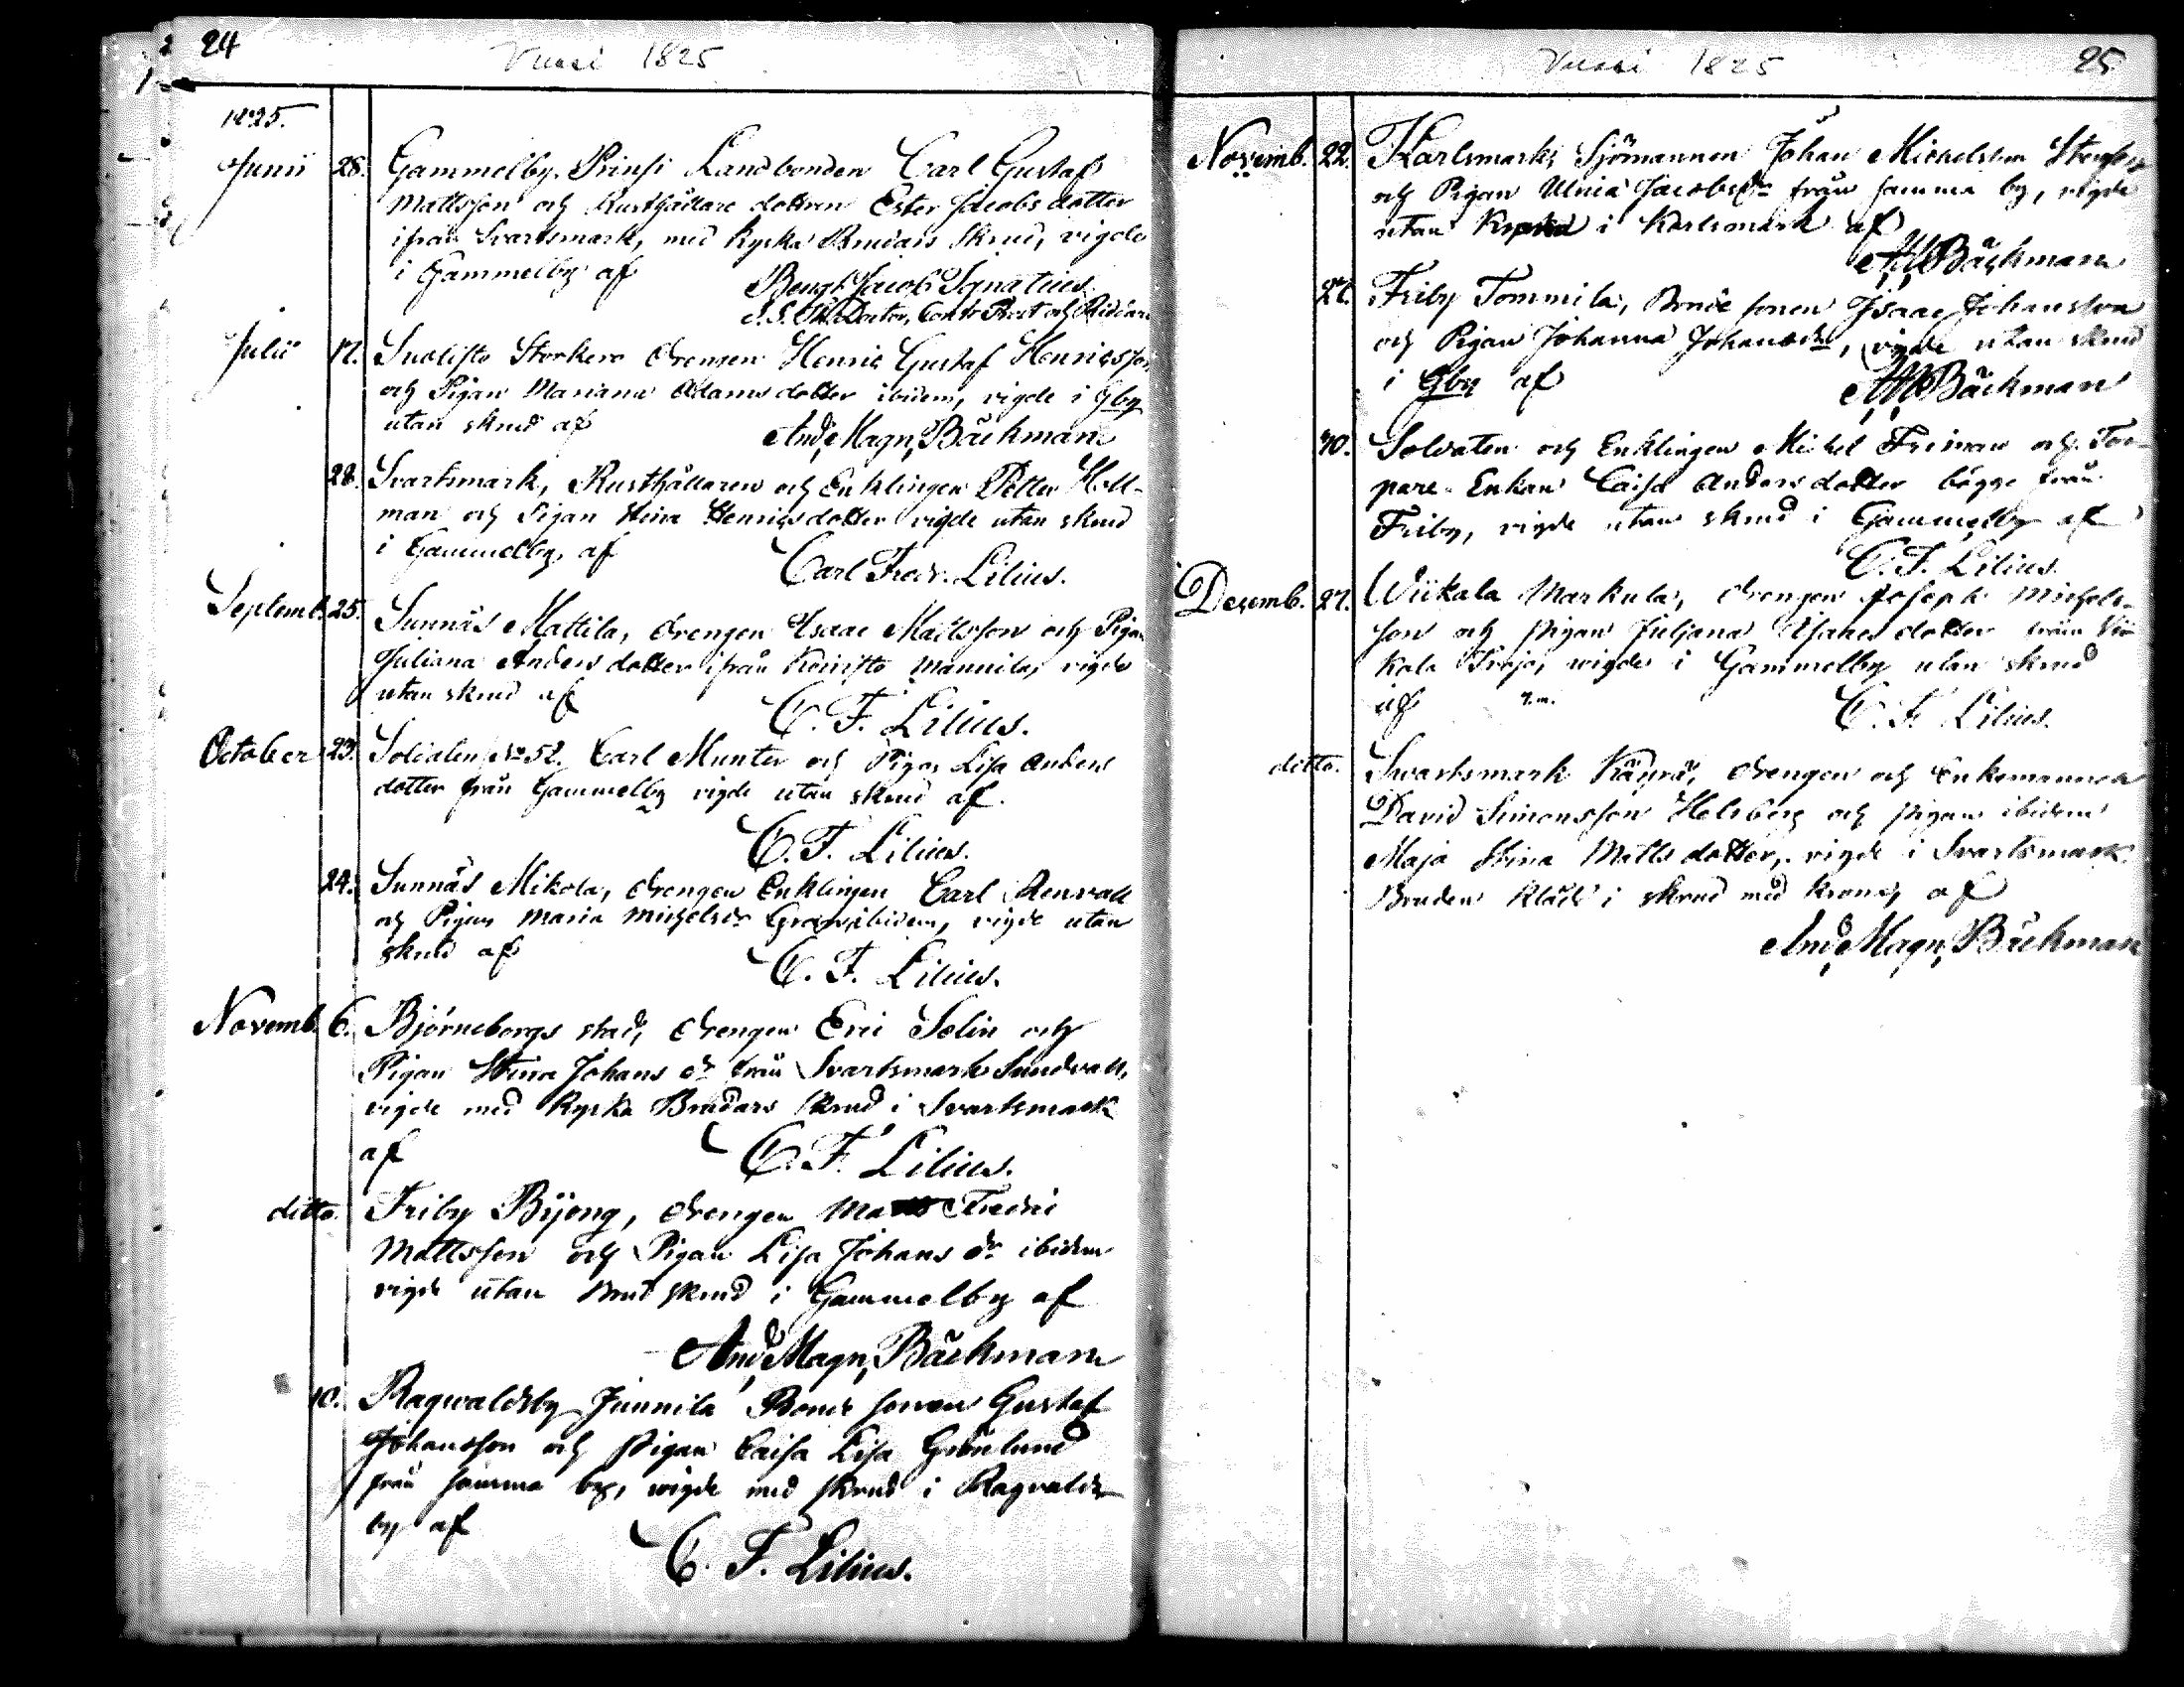 24
Vuosi 1825
1825.
Junii 28. Gammelby Prinsi Landbonden Carl Gustaf
Mattsson och Rusthållare dottren Ester Jacobs dotter
ifrån Svartsmark, med Kyrko Brudars skrud, vigde
i Gammelby af Bengt Jacob Ignatius
S. S. Th. Doctor, Contr. Prost och Riddare
Julii 17. Suolisto Storkero drengen Henric Gustaf Henricsson
och Pigan Mariana Adamsdotter ibidem, vigde i Gby
utan skrud af And. Magn. Bäckman
28. Svartsmark, Rusthållaren och Enklingen Petter Hell-
man och Pigan Stina Henricsdotter vigde utan skrud
i Gammelby, af Carl Fredr. Lilius.
Septemb. 25. Sunnäs Mattila, drengen Isaac Mattsson och Pigan
Juliana Andersdotter ifrån Koivisto Mannila, vigde
utan skrud af C. F. Lilius.
October 23. Soldaten No 52. Carl Munter och Pigan Lisa Anders
dotter från Gammelby vigde utan skrud af
C. F. Lilius.
24. Sunnäs Mikola, drengen Enklingen Carl Renvall
och Pigan Maria Michelsdr ibidem, vigde utan
skrud af C. F. Lilius.
Novemb. 6. Björneborgs stad, drengen Eric Selin och
Pigan Stina Johans dr från Svartsmark Sundvall,
vigde med Kyrko Brudars skrud i Svartsmark
af C. F. Lilius.
ditto. Friby Böjeng, drengen Fredric
Mattsson och Pigan Lisa Johans dr ibidem
vigde utan Brudskrud i Gammelby af
And. Magn. Bäckman
10. Ragwaldsby Junnila Bonde sonen Gustaf
Johansson och pigan Caisa Lisa Grönlund
från samma by, vigde med skrud i Ragvalds
by af C. F. Lilius.
Vuosi 1825
25
Novemb. 22. Karlsmark, Sjömannen Johan Michelsson
och Pigan Ulrica Jacobsdr från samma by, vigde
utan i Karlsmark af
A. M. Bäckman
27. Friby Tommila, Bonde sonen Isaac Johansson
och Pigan Johanna Johansdr, vigde utan skrud
i Gby af A. M. Bäckman
Soldaten och Enklingen Michel Friman och Tor-
pare Enkan Caisa Andersdotter bägge från
Friby, vigde utan skrud i Gammelby af
C. F. Lilius.
Decemb. 27. Wiikala Markula, drengen Joseph Michels-
son och pigan Juliana Isaacs dotter från Wii
kala vigde i Gammelby utan skrud
af C. F. Lilius.
ditto. Svartsmark Käyrä, drengen och Enkemannen
David Simonsson Helsberg och pigan ibidem
Maja Stina Mattsdotter, vigde i Svartsmark,
Bruden klädd i skrud med krona, af
And. Magn. Bäckman